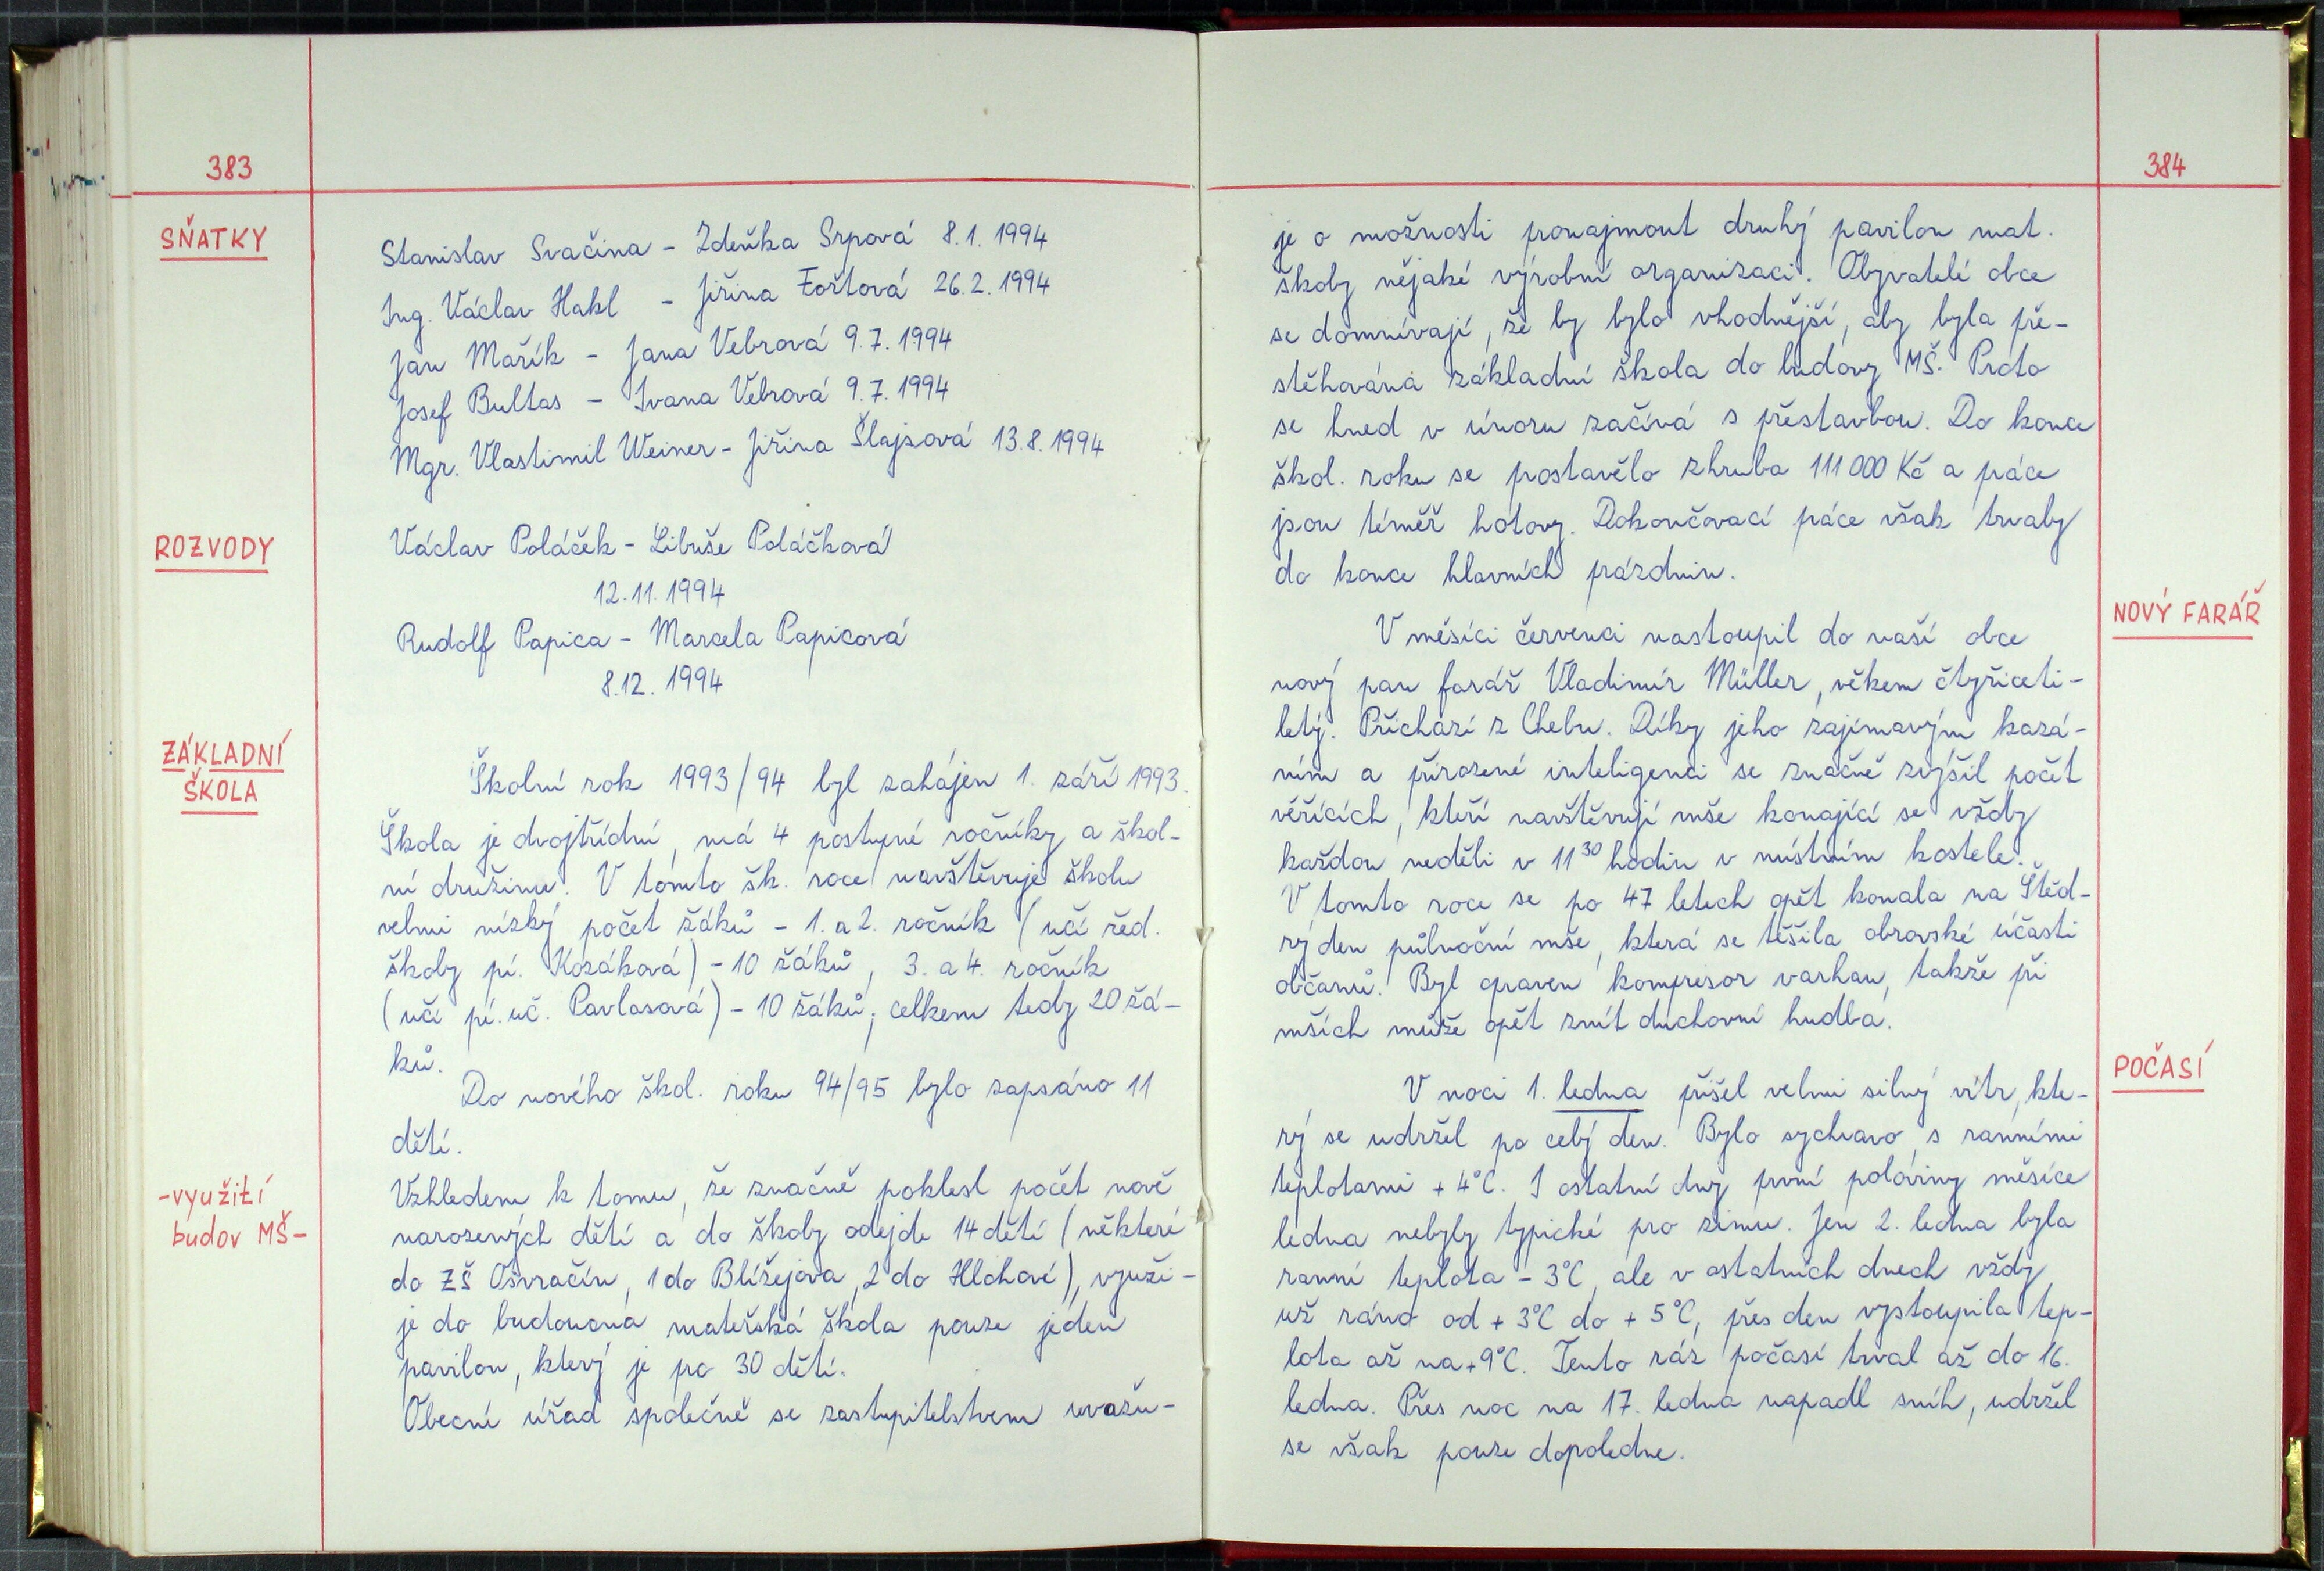 383
SŇATKY
Stanislav Svačina - Zdeňka Srpová 8.1. 1994
Ing. Václav Hakl - Jiřina Fořtová 26.2. 1994
Jan Mařík - Jana Vebrová 9.7. 1994
Josef Bultas - Ivana Vebrová 9.7. 1994
Mgr. Vlastimil Weiner - Jiřina Šlajsová 13.8. 1994
ROZVODY
Václav Poláček - Libuše Poláčková
12.11. 1994
Rudolf Papica - Marcela Papicová
8.12. 1994
ZÁKLADNÍ
ŠKOLA
Školní rok 1993/94 byl zahájen 1. září 1993.
Škola je dvojtřídní, má 4 postupné ročníky a škol-
ní družinu. V tomto šk. roce navštěvuje školu
velmi nízký počet žáků - 1. a 2. ročník (učí řed.
školy pí. Kozáková) - 10 žáků, 3. a 4. ročník
(učí pí. uč. Pavlasová) - 10 žáků; celkem tedy 20 žá-
ků.
Do nového škol. roku 94/95 bylo zapsáno 11
dětí.
-využití
budov MŠ-
Vzhledem k tomu, že značně poklesl počet nově
narozených dětí a do školy odejde 14 dětí (některé
do ZŠ Osvračín, 1 do Blížejova, 2 do Hlohové), využi-
je do budoucna mateřská škola pouze jeden
pavilon, který je pro 30 dětí.
Obecní úřad společně se zastupitelstvem uvažu-
384
je o možnosti pronajmout druhý pavilon mat.
školy nějaké výrobní organizaci. Obyvatelé obce
se domnívají, že by bylo vhodnější, aby byla pře-
stěhována základní škola do budovy MŠ. Proto
se hned v únoru začíná s přestavbou. Do konce
škol. roku se prostavělo zhruba 111 000 Kč a práce
jsou téměř hotovy. Dokončovací práce však trvaly
do konce hlavních prázdnin.
NOVÝ FARÁŘ
V měsíci červenci nastoupil do naší obce
nový pan farář Vladimír Müller, věkem čtyřiceti-
letý. Přichází z Chebu. Díky jeho zajímavým kázá-
ním a přirozené inteligenci se značně zvýšil počet
věřících, kteří navštěvují mše konající se vždy
každou neděli v 11 30 hodin v místním kostele.
V tomto roce se po 47 letech opět konala na Štěd-
rý den půlnoční mše, která se těšila obrovské účasti
občanů. Byl opraven kompresor varhan, takže při
mších může opět znít duchovní hudba.
POČASÍ
V noci 1. ledna přišel velmi silný vítr, kte-
rý se udržel po celý den. Bylo sychravo, s ranními
teplotami + 4°C. I ostatní dny první poloviny měsíce
ledna nebyly typické pro zimu. Jen 2. ledna byla
ranní teplota - 3°C, ale v ostatních dnech vždy
už ráno od + 3°C do + 5°C, přes den vystoupila tep-
lota až na +9°C. Tento ráz počasí trval až do 16.
ledna. Přes noc na 17. ledna napadl sníh, udržel
se však pouze dopoledne.